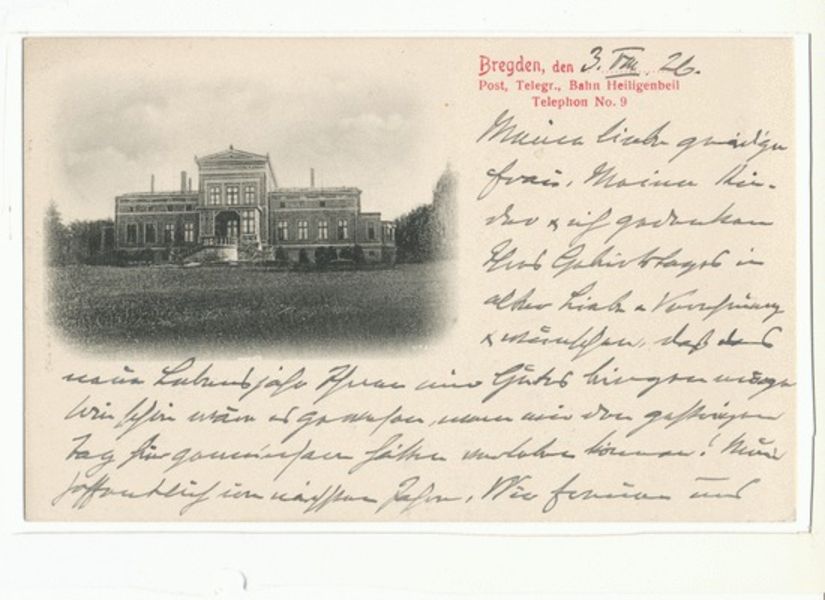 Bregden, den 3. VIII. 26.
Post, Telegr., Bahn Heiligenbeil
Telephon No. 9
Meine liebe gnädige
Frau, Meine Kin-
der & ich gedenken
Ihres Geburtstages in
alter Liebe u Verehrung
& wünschen, daß das
neue Lebensjahr Ihnen nur Gutes bringen möge
Wie schön wäre es gewesen, wenn wir den gestrigen
Tag hier gemeinsam hätten verleben können! Nun
hoffentlich im nächsten Jahre. Wir freuen uns